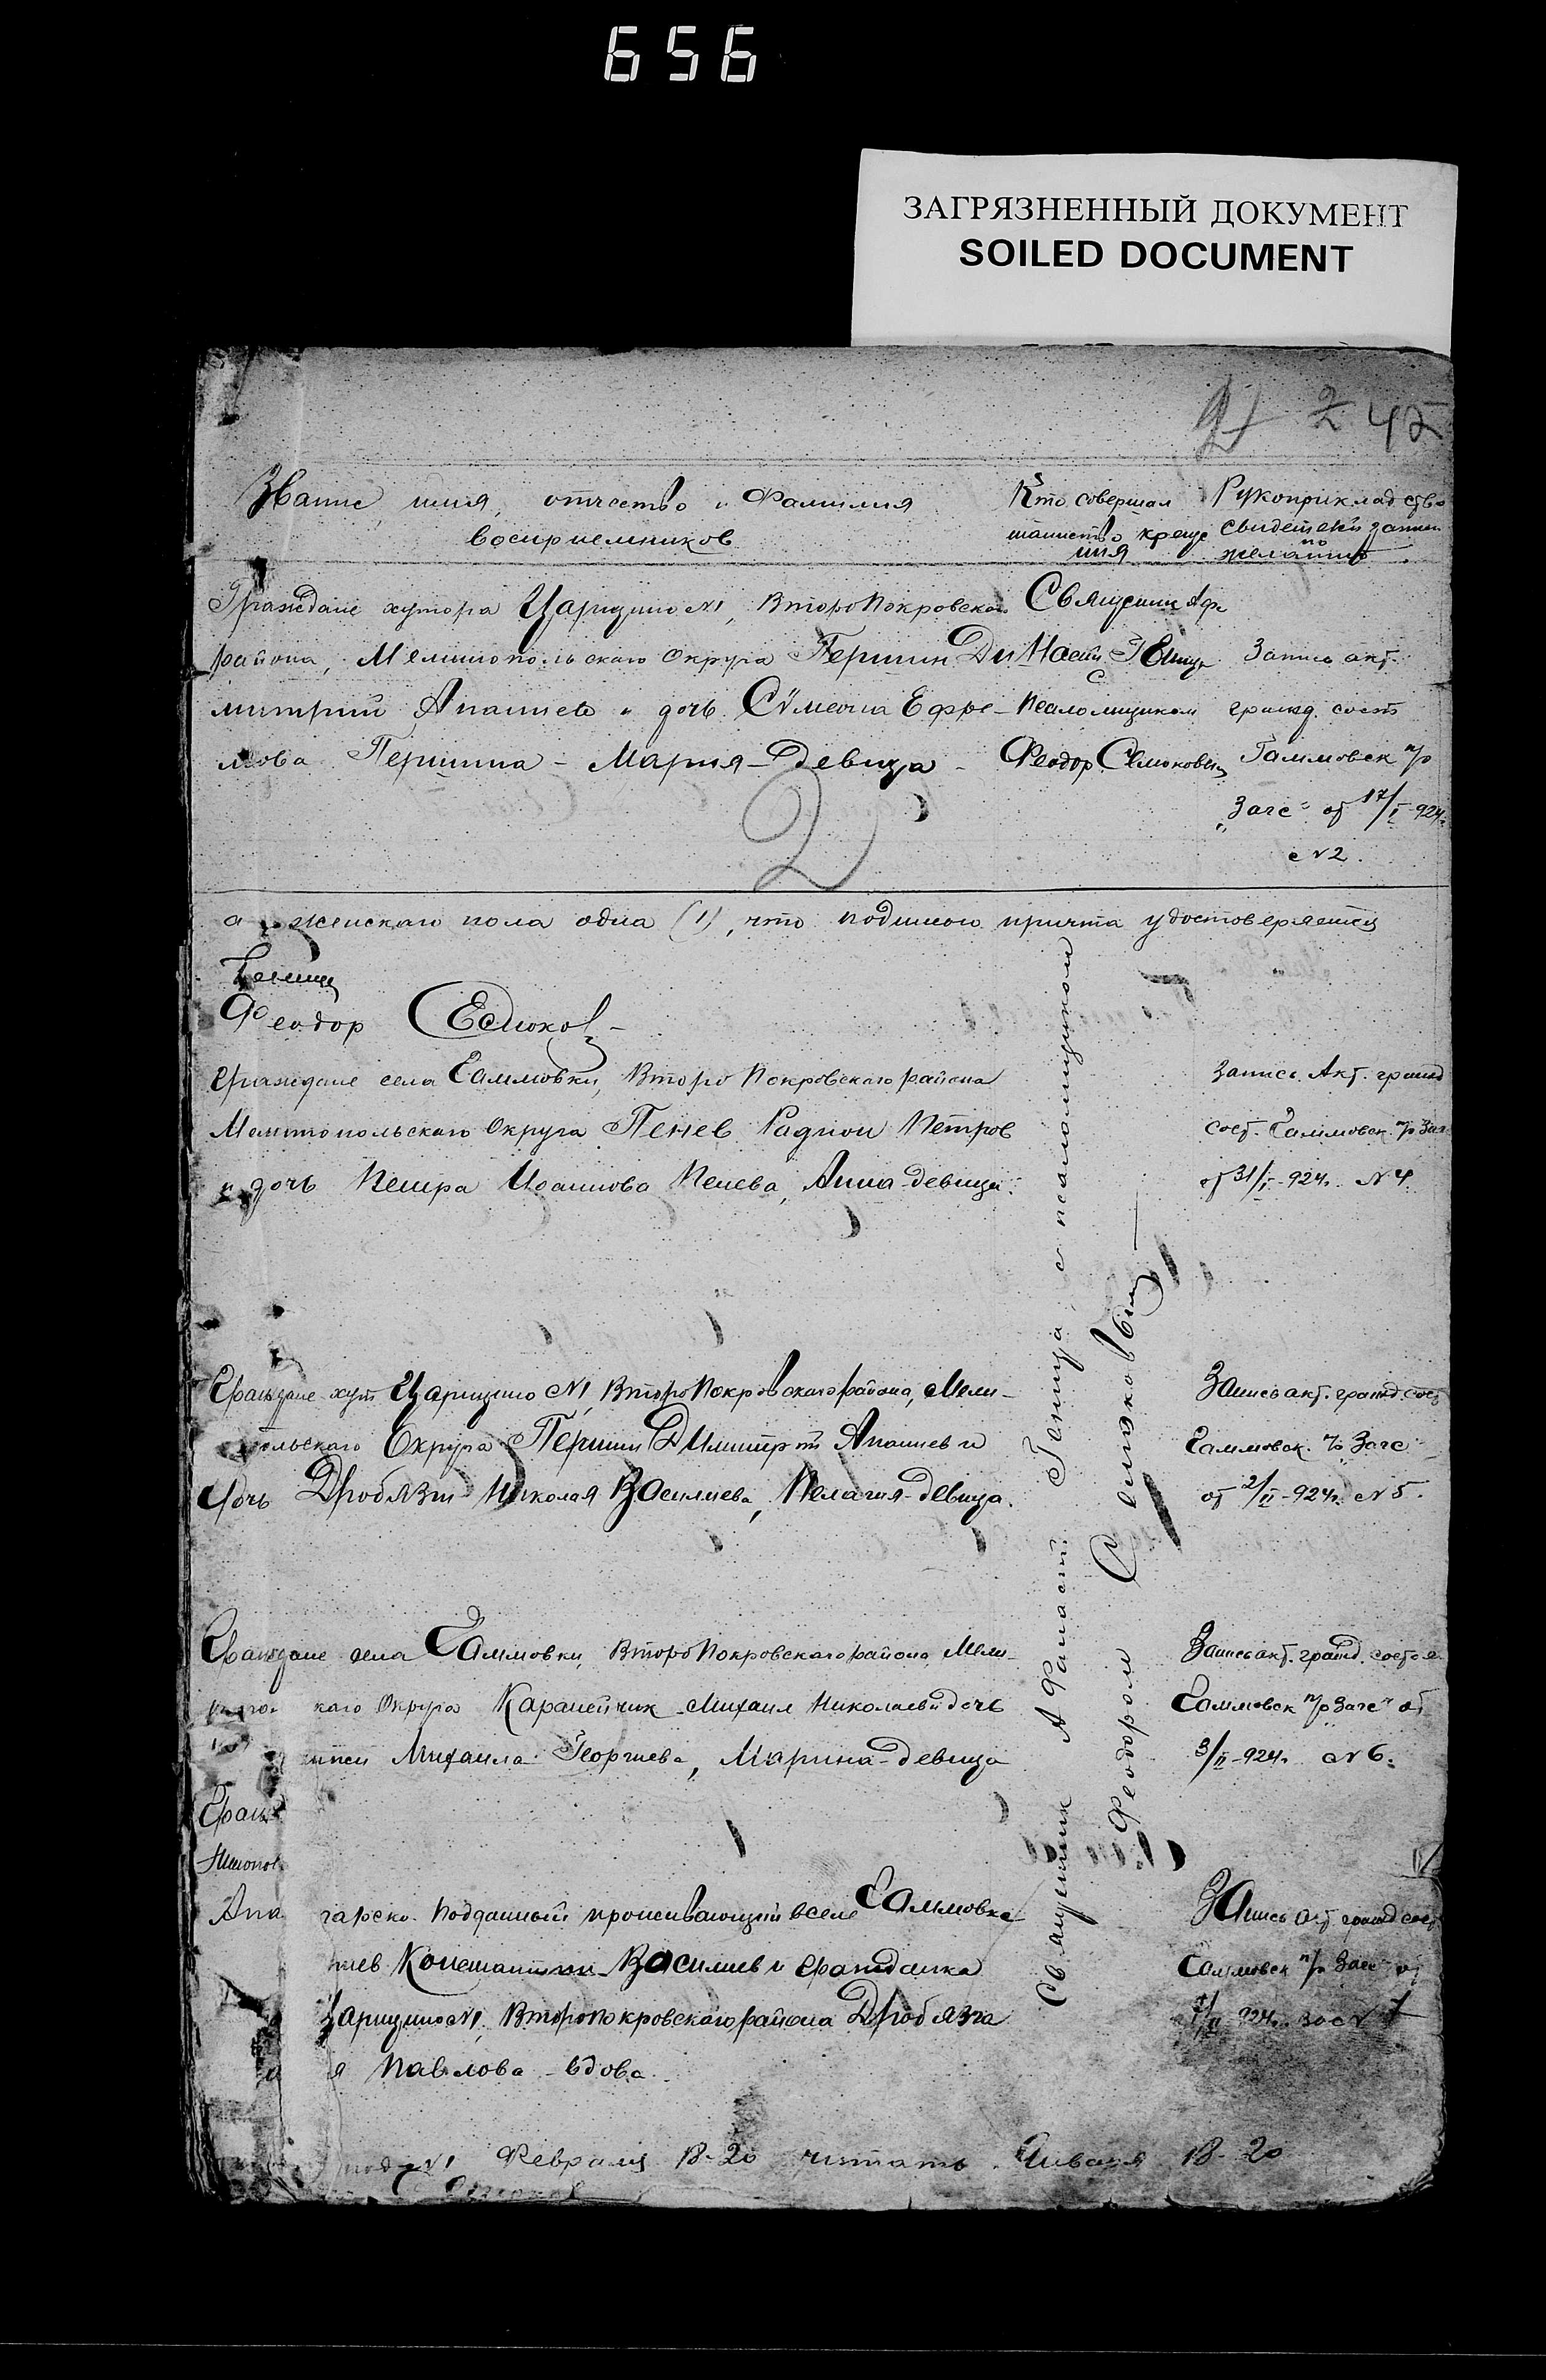 656
ЗАГРЯЗНЕННЫЙ ДОКУМЕНТ
SOILED DOCUMENT
2 45
Звание, имя, отчество и Фамилия
восприемников
Кто совершал
таинство креще
ния
Рукоприкладство
свидетелей записи
по
желанию
Граждане хутора Царицино №1, ВтороПокровскаго
района, Мелитопольскаго Округа Першин Ди
митрий Апаниев и дочь Сѵмеона Ефре-
мова Першина - Мария - девица -
Священник Афа
насий Геница с
Псаломщиком
Феодор Семоковым
Запись акт.
гражд. сост
Гаммовск п/р
"Загс" от 17/I 924г.
№2.
2
а женскаго пола одна (1), что подписом причта удостоверяется
Геница
Феодор Семоков
Граждане села Гаммовки, Второ Покровскаго района
Мелитопольскаго Округа Пенев Радион Петров
и дочь Петра Иоаннова Пенева, Анна - девица.
Запись Акт. гражд
сост. Гаммовск. п/р Загс
от 31/I - 924г. №4
Граждане хут Царицино №1, ВтороПокровскаго района, Мели-
польскаго Округа Першин Димитрий Апаниев и
дочь Дробязги Николая Василиева, Пелагия - девица.
Запись акт. гражд. сост
Гаммовск. п/р Загс
от 2/II - 924г. №5.
Граждане села Гаммовки, ВтороПокровскаго района, Мели-
каго Округа Карапейчик Михаил Николаев и дочь
Михаила Георгиева, Марина - девица
Запись акт. гражд. состоя
Гаммовск п/р Загс" от
3/II - 924г. №6.
Граж
Апа
гарско. подданный проживающий в селе Гаммовке
Констатин Василиев и Гражданка
Царицино №1, ВтороПокровскаго района Дробязга
я Павлова - вдова.
Запись акт гражд сост
Гаммовск п/р Загс от
7/II 924г. за № 7
Священник Афанасий Геница с псаломщиком
Феодором Семоковым
под №1 Февраля 18-20 читать Января 18-20